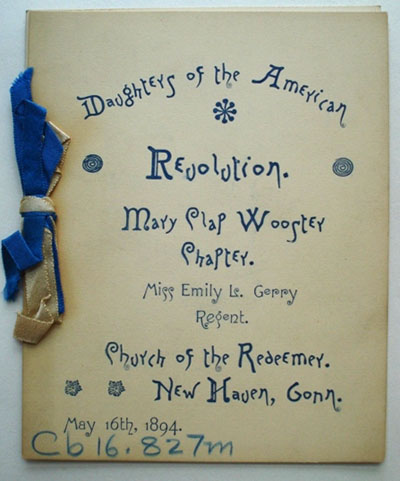 Daughters of the American
Revolution.
Mary Clap Wooster
Chapter.
Miss Emily L. Gerry
Regent.
Church of the Redeemer.
New Haven, Conn.
May 16th, 1894.
Cb 16.827m